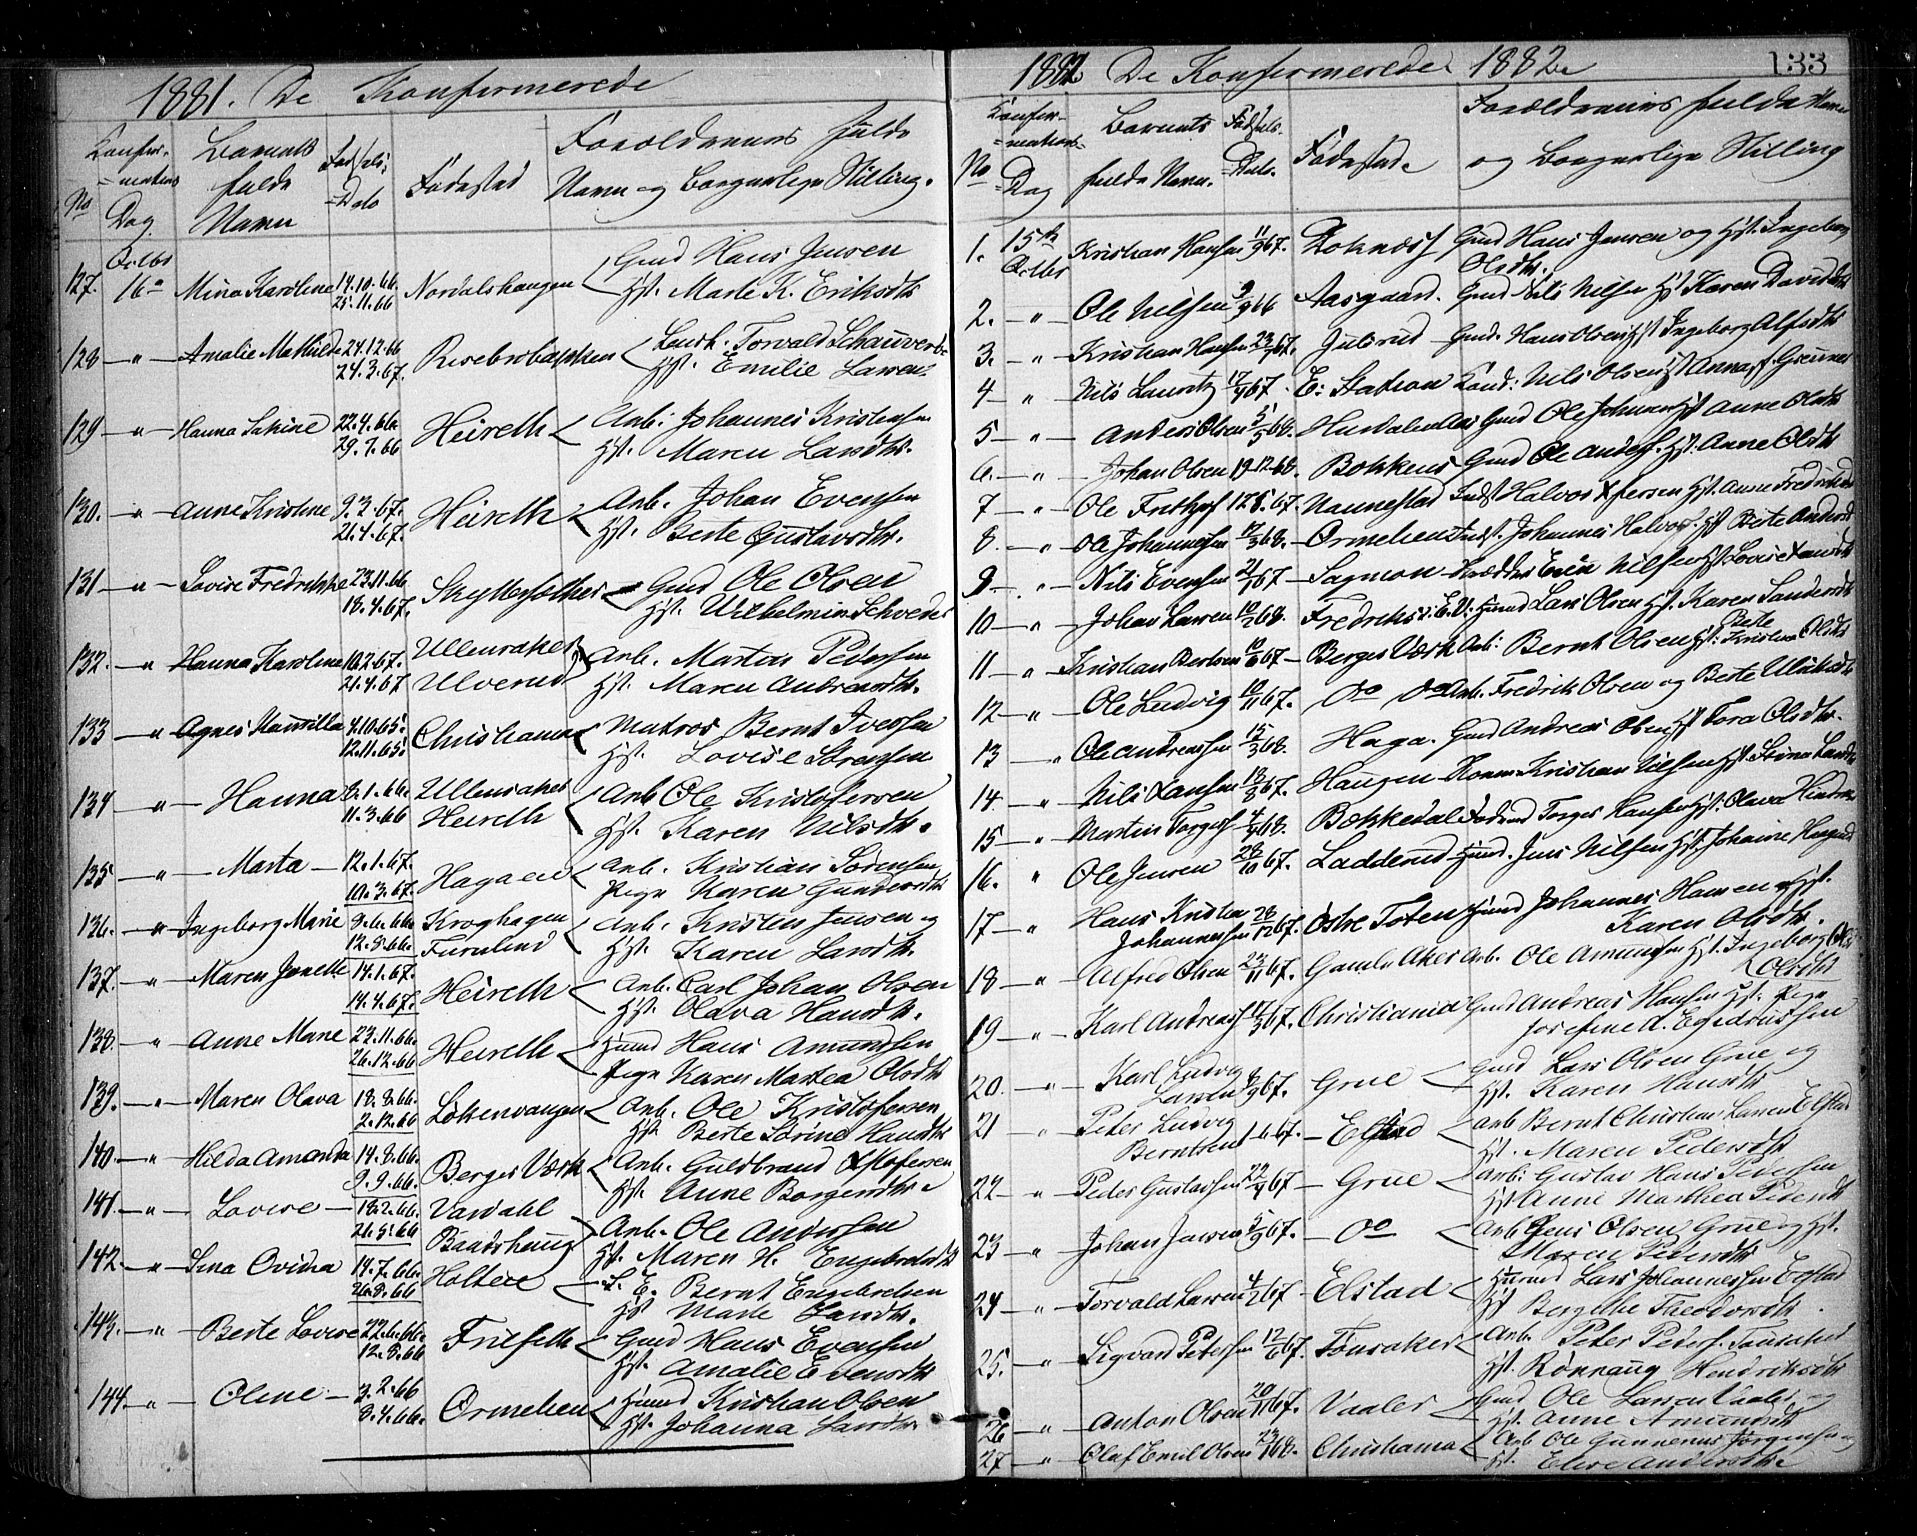 1881. De Konfirmerede
No
Konfir-
=mations
Dag
Barnets
fulde
Navn
Fødsels=
=Dato
Fødested
Forældrenes fulde
Navn og Borgerlige Stilling.
127. Octbr 16de Mina Karoline 14.10.66. 25.11.66 Nordalshaugen Gmd Hans Jensen
Hst. Marte K. Eriksdtr
128 — " — Amalie Mathilde 24.12.66 24.3.67. Risebrobakken Torvald
Hst. Emilie Larsen
129 — " — Hanna Sabine 22.4.66. 29.7.66 Heireth Arb: Johannes Kristensen
Hst. Maren Larsdtr.
130. — " — Anne Kristine 9.2.67. 21.4.67. Heireth Arb. Johan Evensen
Hst. Berte Gustavsdtr.
131 — " — Lovise Fredrikke 23.11.66 18.4.67. Gmd Ole Olsen
Hst. Wilhelmine
132. — " — Hanna Karoline 16.2.67. 21.4.67 Ullensaker Ulverud Arb. Martin Pedersen
Hst. Maren Andreasdtr.
133 — " — Agnes 4.10.65. 12.11.65. Christiania Matros Bernt Iversen
Hst. Lovise Sørensen
134 — " — Hanna 8.1.66. 11.3.66 Ullensaker Heireth Arb Ole Kristofersen
Hst. Karen Nilsdtr.
135 — " — Marta — 12.1.67. 10.3.67. Hagaen Arb. Kristian Sørensen
Pige Karen Gundersdtr
136. — " — Ingeborg Marie 8.6.66. 12.8.66. Kroghagen Furulund Arb. Kristen Jensen og
Hst. Karen Larsdtr
137. — " — Maren Janette 14.1.67. 14.4.67. Heireth Arb. Carl Johan Olsen
Hst. Olava Hansdtr.
138. " — Anne Marie 23.11.66. 26.12.66 Heireth Hans Amundsen
Pige Karen Martea Olsdtr
139. — " — Maren Olava 18.8.66. 2.12.66 Løkenvangen Arb. Ole Kristofersen
Hst Berte Sørine Hansdtr
140. — " — Hilda Amanda 14.8.66. 9.9.66. Berger Værk Arb. Guldbrand Xstofersen
Hst. Anne Borgersdtr.
141. — " — Lovise — 18.2.66. 21.5.66 Vardahl Baadshaug Arb. Ole Andersen
Hst. Maren H. Engebretsdtr
142. — " — Lina Ovidia 14.7.66. 26.8.66 Holteie S. E. Bernt Engebretsen
Hst Marte Larsdtr.
143. — " — Berte Lovise 22.6.66. 12.8.66 Frilseth Gmd Hans Evensen
Hst. Amalie Evensdtr
144. — " — Oline — 3.2.66 8.4.66. Ormelien Kristian Olsen
Hst. Johanna Larsdtr
1882 De Konfirmerede 1882. 133
No
Konfir-
=mations-
=Dag
Barnets
fulde Navn.
Fødsels-
=Dato.
Fødested.
Forældrenes fulde Navn
og Borgerlige Stilling
1. 15de Octbr Kristian Hansen 11/9 67. Loknæs Gmd Hans Jensen og Hst. Ingeborg
Olsdtr.
2. — " — Ole Nilsen 9/9 66 Aasgaard. Gmd Nils Nilsen Hst Karen Davidsdtr
3. — " — Kristian Hansen 23/9 67. Julsrud Gmd. Hans Olsen Hst Ingeborg Alfsdtr
4 — " — Nils Lauritz 17/9 67. E: Station Kond: Nils Olsen Hst Anna
5 — " — Anders Olsen 5/5 68. Gmd Ole Johnsen Hst Anne Olsdtr
6. — " — Johan Olsen 19-12-68. Bokkens Gmd Ole Anders. Hst. Anne Olsdtr
7 — " — Ole Frithjof 12.8.67. Nannestad Indst Halvor Xfersen Hst. Anne Fredriksd
8. — " — Ole Johannesen 17/3 68. Ormelien Indst. Johannes Halvors. Hst Berte Andersd
9 — " — Nils Evensen 21/7 67 — Sagmon Skrædder Even Nilsen Hst Lovise
10 — " — Johan Larsen 10/2 68. Lars Olsen Hst. Karen
11 — " — Kristian Berntsen 10/6 67 — Berger Værk Arb: Bernt Olsen Hst: Berte Kristine Olsdtr
12 — " — Ole Ludvig 10/11 67. Do Do Arb. Fredrik Olsen og Berte
13 — " — Ole Andreassen 15/3 68. Haga. Gmd Andreas Olsen Hst Tora Olsdtr.
14 — " — Nils 18/3 67. Haugen Kristian Nilsen Hst Stina
15 — " — Martin Torgers 4/4 68. Bækkedal Torger Hansen Hst. Olava
16. " — Ole Jensen 28/10 67. Ladderud Jens Nilsen Hst Johanne
17 — " Hans Kristen
Johannesen 28/12 67. Østre Toten Johannes Hansen og Hst.
Karen Olsdtr.
18 — " — Alfred Olsen 23/11 67. Gamle Aker Arb. Ole Amundsen Hst. Ingeborg
Olsdtr
19 — " — Karl Andreas 17/3 67. Christiania Gmd Andreas Hansen og Pige
Josefine A.
20. — " — Karl Ludvig
Larsen 8/9 67. Grue Gmd Lars Olsen Grue og
Hst. Karen Hansdtr
21 — " — Peter Ludvig
Berntsen 1 6 67. — Elstad Arb Bernt Christian Larsen Elstad
Hst. Maren Pedersdtr
22 — " — Peder Gustavsen 22/4 67 — Grue Arb: Gustav Hans Pedersen
Hst Anne Mathea Pedersdtr
23 — " — Johan Jensen 5/9 67. — Do Arb Jens Olsen Grue og Hst.
Maren Pedersdtr
24 — " — Torvald Larsen 4/2 67 — Elstad Lars Johannessen Elstad
Hst Bergithe Theodorsdtr.
25. — " — Sigvard Petersen 12/6 67. Tønsaker Arb. Peter Peters.
Hst. Rønnaug Hendriksdtr
26 — " — Anton Olsen 20/11 67. Vaaler Gmd Ole Larsen Vaaler og
Hst. Anne Amundsdtr
27 — " — Olaf Emil Olsen 23/1 68. Christiania Arb Ole Gunnerius Jørgensen og
Hst. Elise Andersdtr.